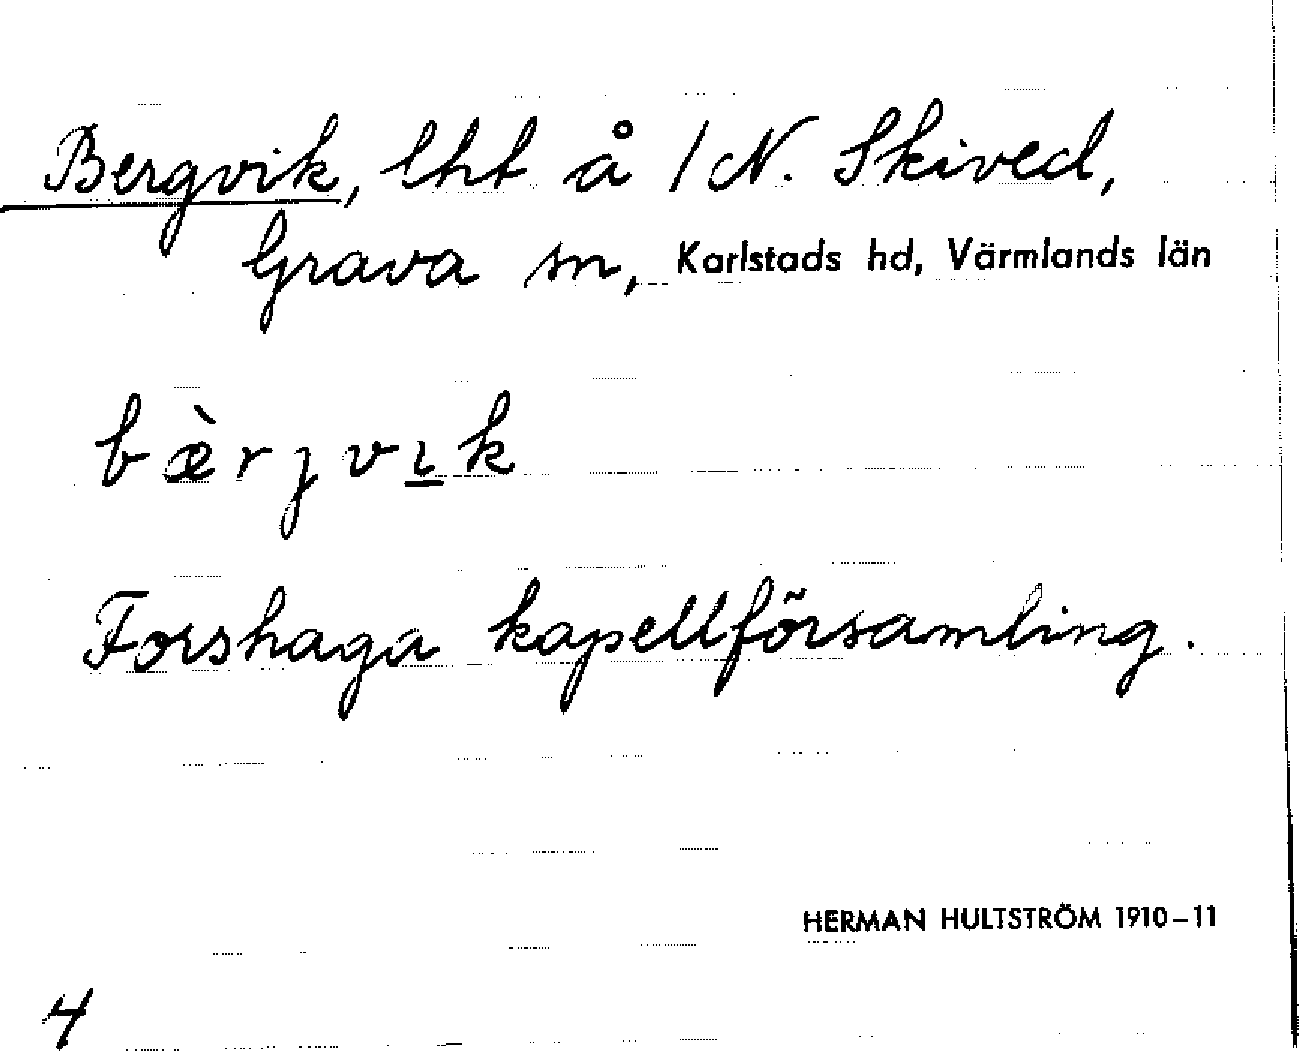 Bergvik, lht å /N. Skived,
Grava sn, Karlstads hd, Värmlands län
bæ̀rȷvı̲k
Forshaga kapellförsamling.
HERMAN HULTSTRÖM 1910–11
4